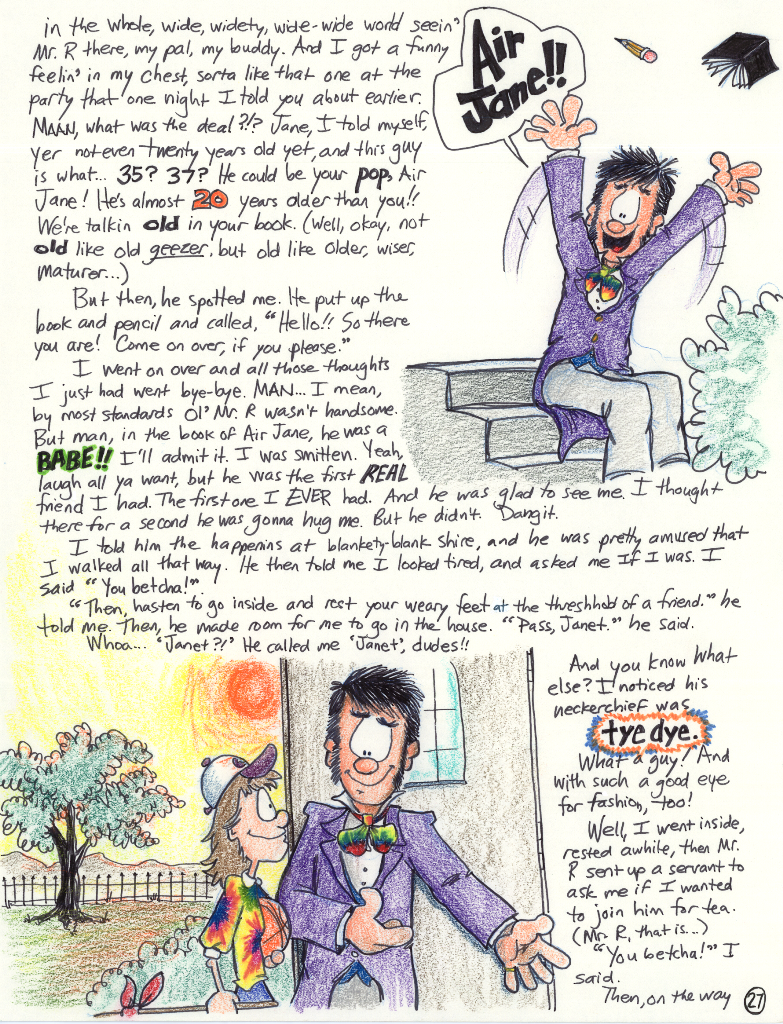 in the whole, wide, widety, wide-wide world seein'
Mr. R there, my pal, my buddy. And I got a funny
feelin' in my chest, sorta like that one at the
party that one night I told you about earlier.
MAAN, what was the deal?!? Jane, I told myself,
yer not even twenty years old yet, and this guy
is what... 35? 37? He could be your pop, Air
Jane! He's almost 20 years older than you!!
We're talkin old in your book. (Well, okay, not
old like old geezer, but old like older, wiser,
maturer...)
Air
Jane!!
But then, he spotted me. He put up the
book and pencil and called, "Hello!! So there
you are! Come on over, if you please."
I went on over and all those thoughts
I just had went bye-bye. MAN... I mean,
by most standards ol' Mr. R wasn't handsome.
But man, in the book of Air Jane, he was a
BABE!! I'll admit it. I was smitten. Yeah,
laugh all ya want, but he was the first REAL
friend I had. The first one I EVER had. And he was glad to see me. I thought
there for a second he was gonna hug me. But he didn't. Dangit.
I told him the happenins at blankety-blank shire, and he was pretty amused that
I walked all that way. He then told me I looked tired, and asked me if I was. I
said "You betcha!".
"Then, hasten to go inside and rest your weary feet at the threshhold of a friend." he
told me. Then, he made room for me to go in the house. "Pass, Janet." he said.
Whoa... 'Janet?!' He called me 'Janet', dudes!!
And you know what
else? I noticed his
neckerchief was
tye dye.
What a guy! And
with such a good eye
for fashion, too!
Well, I went inside,
rested awhile, then Mr.
R sent up a servant to
ask me if I wanted
to join him for tea.
(Mr. R, that is...)
"You betcha!" I
said.
Then, on the way
27